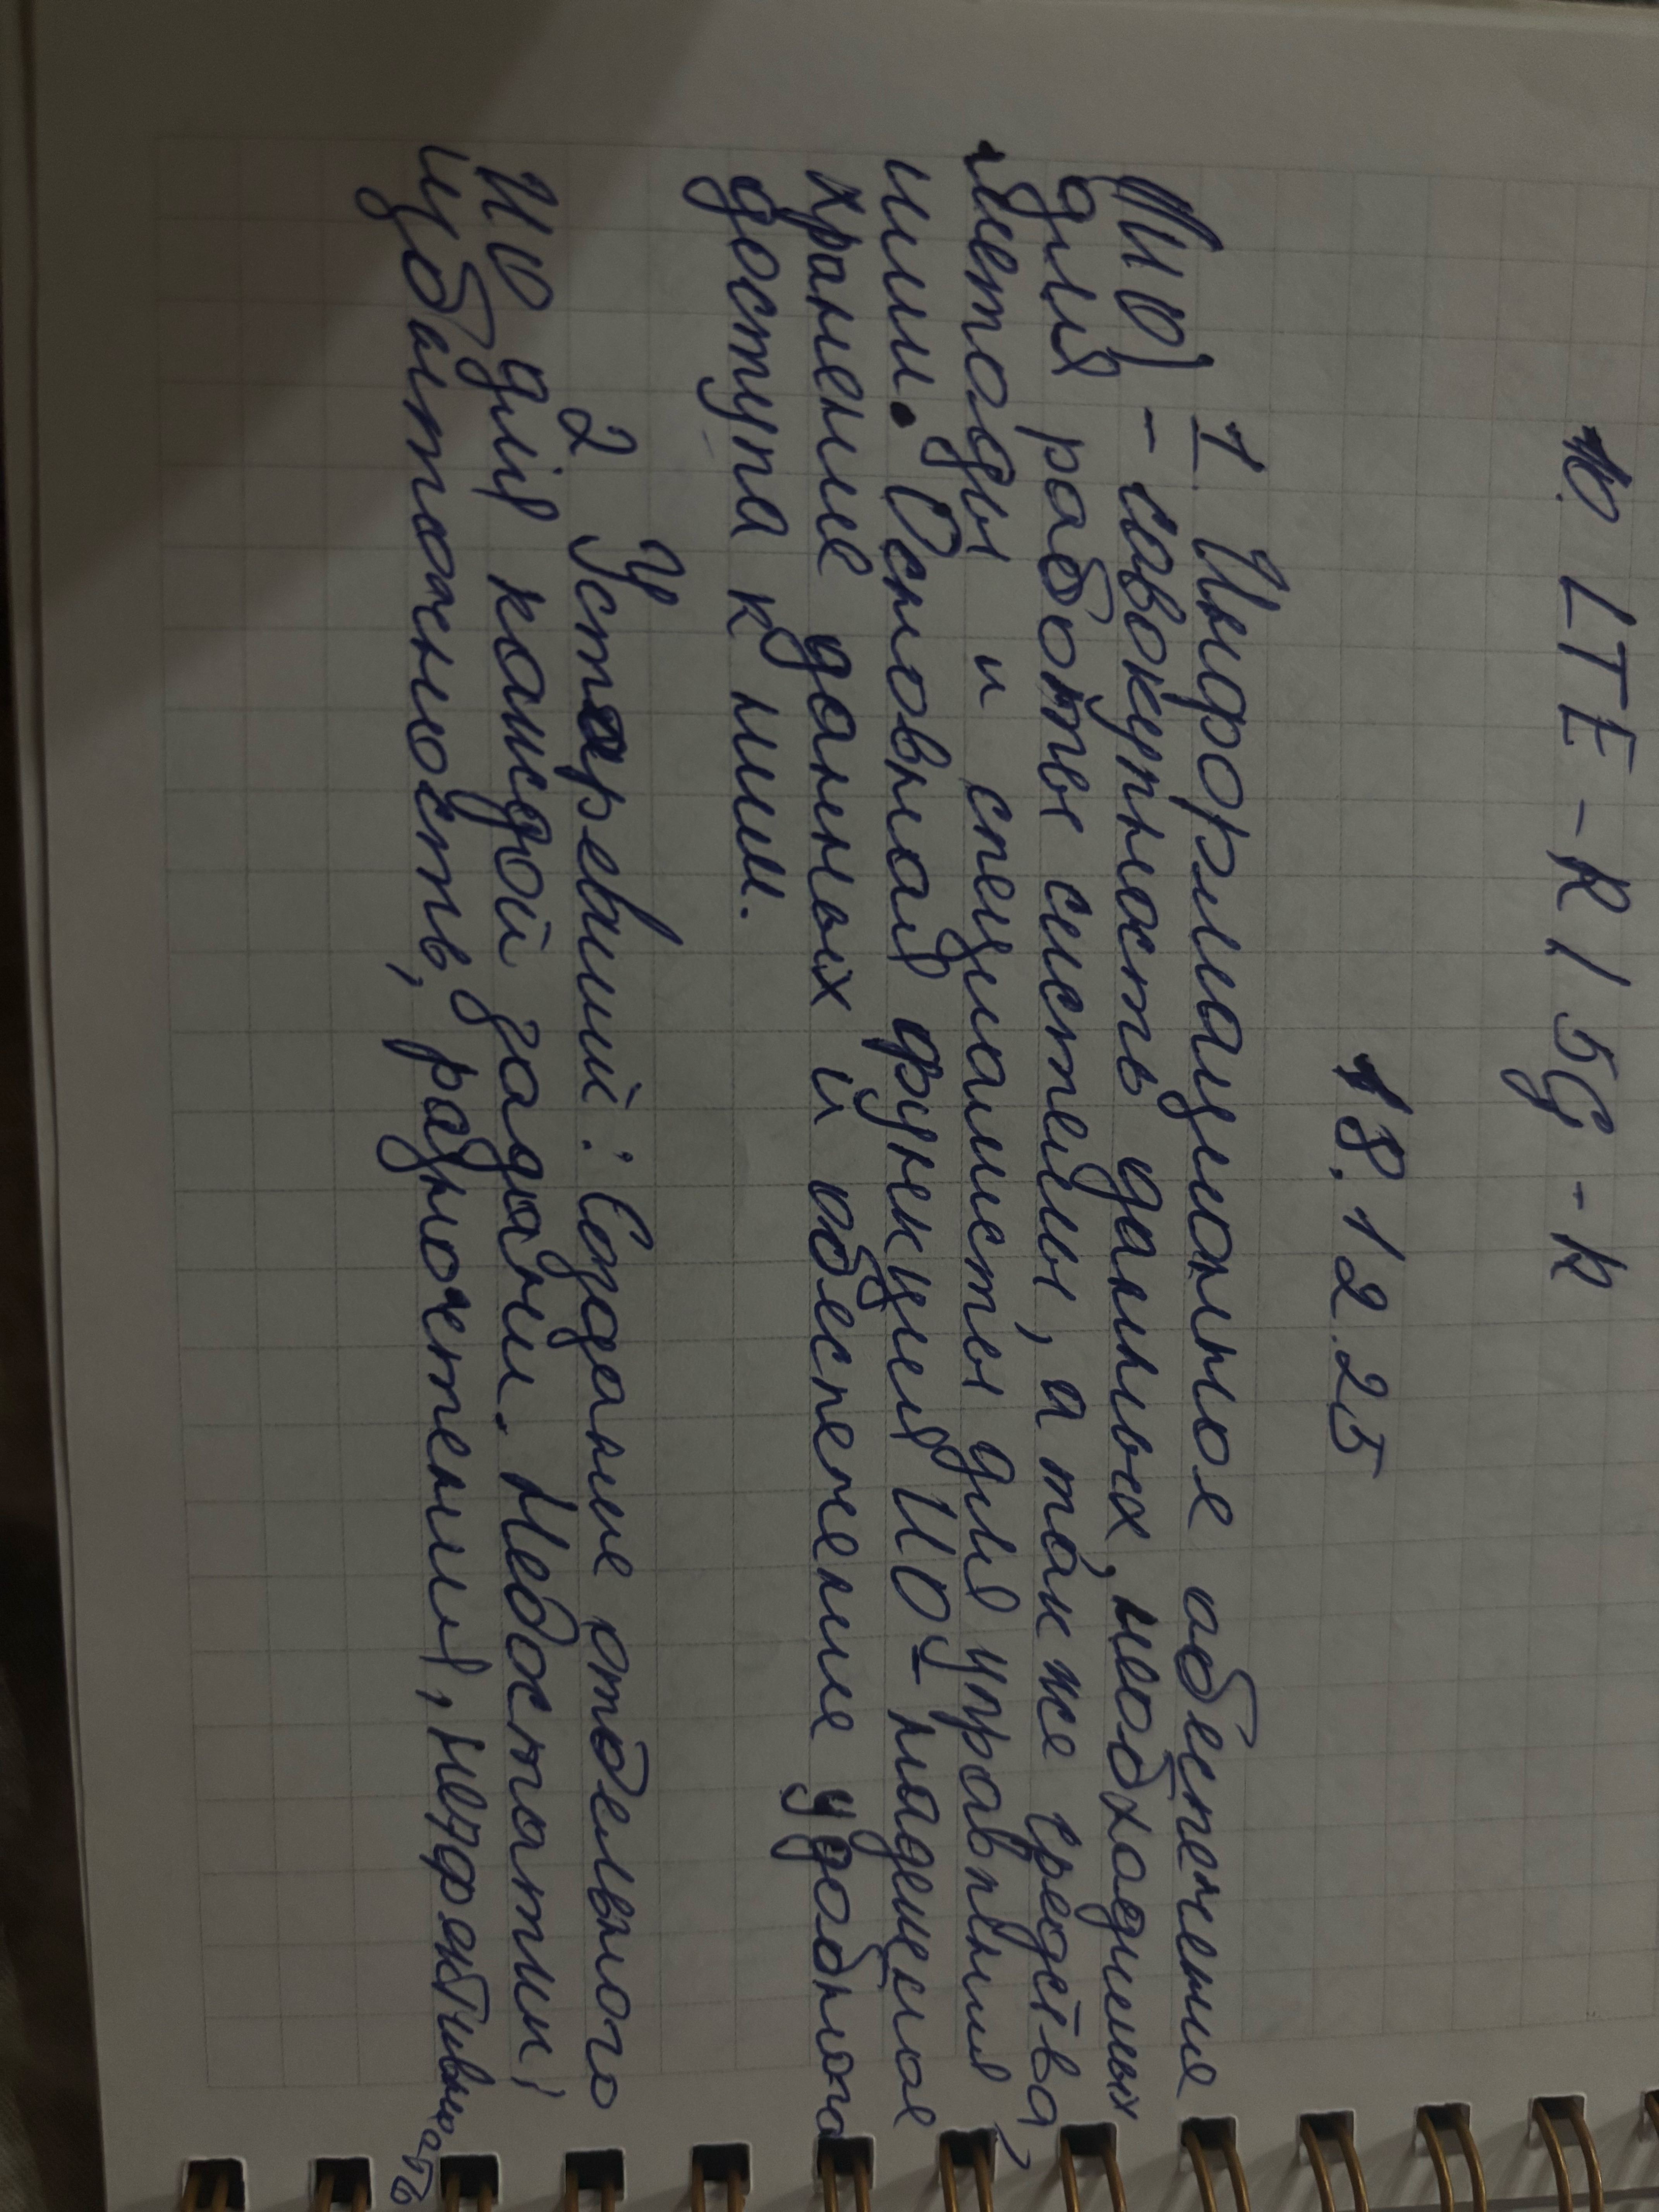 10. LTE-R / 5G-R
18.12.25
1 Информационное обеспечения
(ИО) - совокупность данных, необходимых
для работы системы, а также средства,
методы и специалисты для управления
ими. Основная функция ИО - надежное
хранение данных и обеспечение удобного
доступа к ним.
2 Устаревший: Создание отдельного
ИО для каждой задачи. Недостатки:
избыточность, разночтения, неэффективность